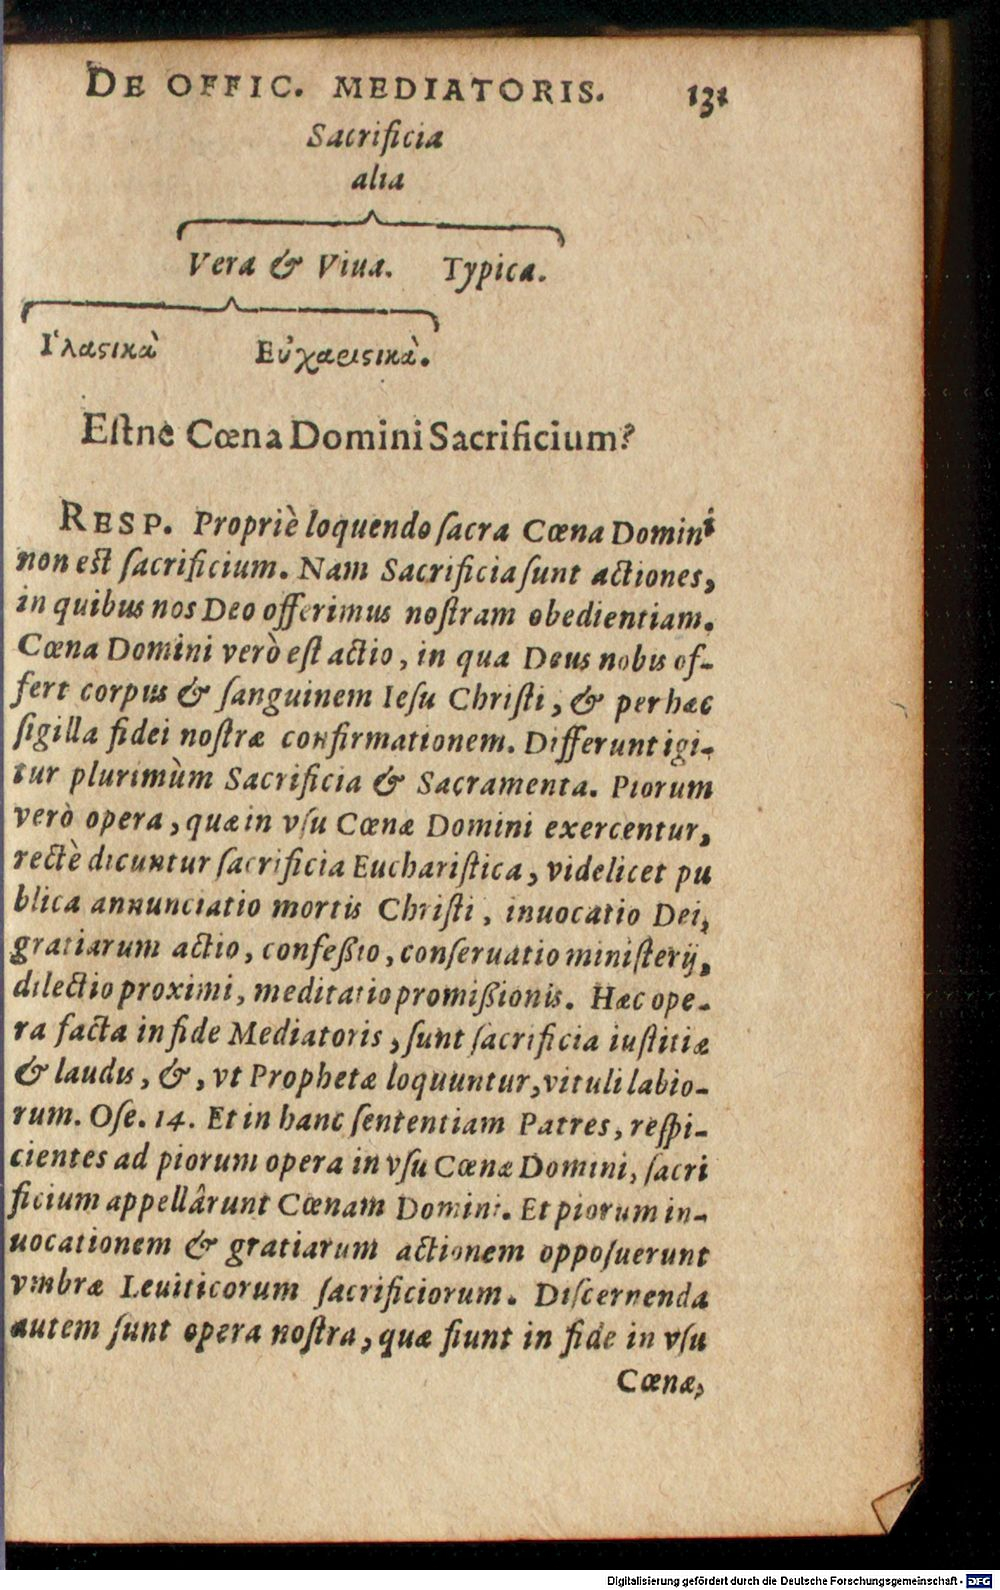 DE OFFIC. MEDIATORIS. 131
Sacrificia
alia
Vera & Viua. Typica.
Ἱλαϛικὰ Εὐχαριϛικὰ.
Eſtne Cœna Domini Sacrificium?
RESP. Propriè loquendo ſacra Cœna Domini
non eſt ſacrificium. Nam Sacrificia ſunt actiones,
in quibus nos Deo offerimus noſtram obedientiam.
Cœna Domini verò eſt actio, in qua Deus nobis of-
fert corpus & ſanguinem Ieſu Chriſti, & per hæc
ſigilla fidei noſtræ confirmationem. Differunt igi-
tur plurimùm Sacrificia & Sacramenta. Piorum
verò opera, quæ in vſu Cœnæ Domini exercentur,
rectè dicuntur ſacrificia Euchariſtica, videlicet pu
blica annunciatio mortis Chriſti, inuocatio Dei,
gratiarum actio, confeßio, conſeruatio miniſterij,
dilectio proximi, meditatio promißionis. Hæc ope-
ra facta in fide Mediatoris, ſunt ſacrificia iuſtitiæ
& laudis, &, vt Prophetæ loquuntur, vituli labio-
rum. Oſe. 14. Et in hanc ſententiam Patres, reſpi-
cientes ad piorum opera in vſu Cœnæ Domini, ſacri
ficium appellârunt Cœnam Domini. Et piorum in-
uocationem & gratiarum actionem oppoſuerunt
vmbræ Leuiticorum ſacrificiorum. Diſcernenda
autem ſunt opera noſtra, quæ fiunt in fide in vſu
Cœnæ,
Digitalisierung gefördert durch die Deutsche Forschungsgemeinschaft - DFG